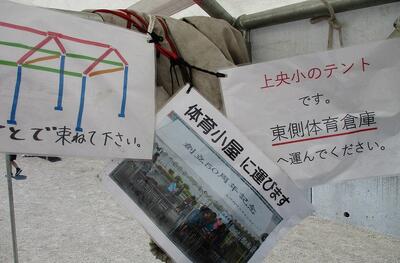 とで束ねて下さい。
体育小屋に運びます
創立50周年記念
上央小のテント
です。
東側体育倉庫
へ運んでください。